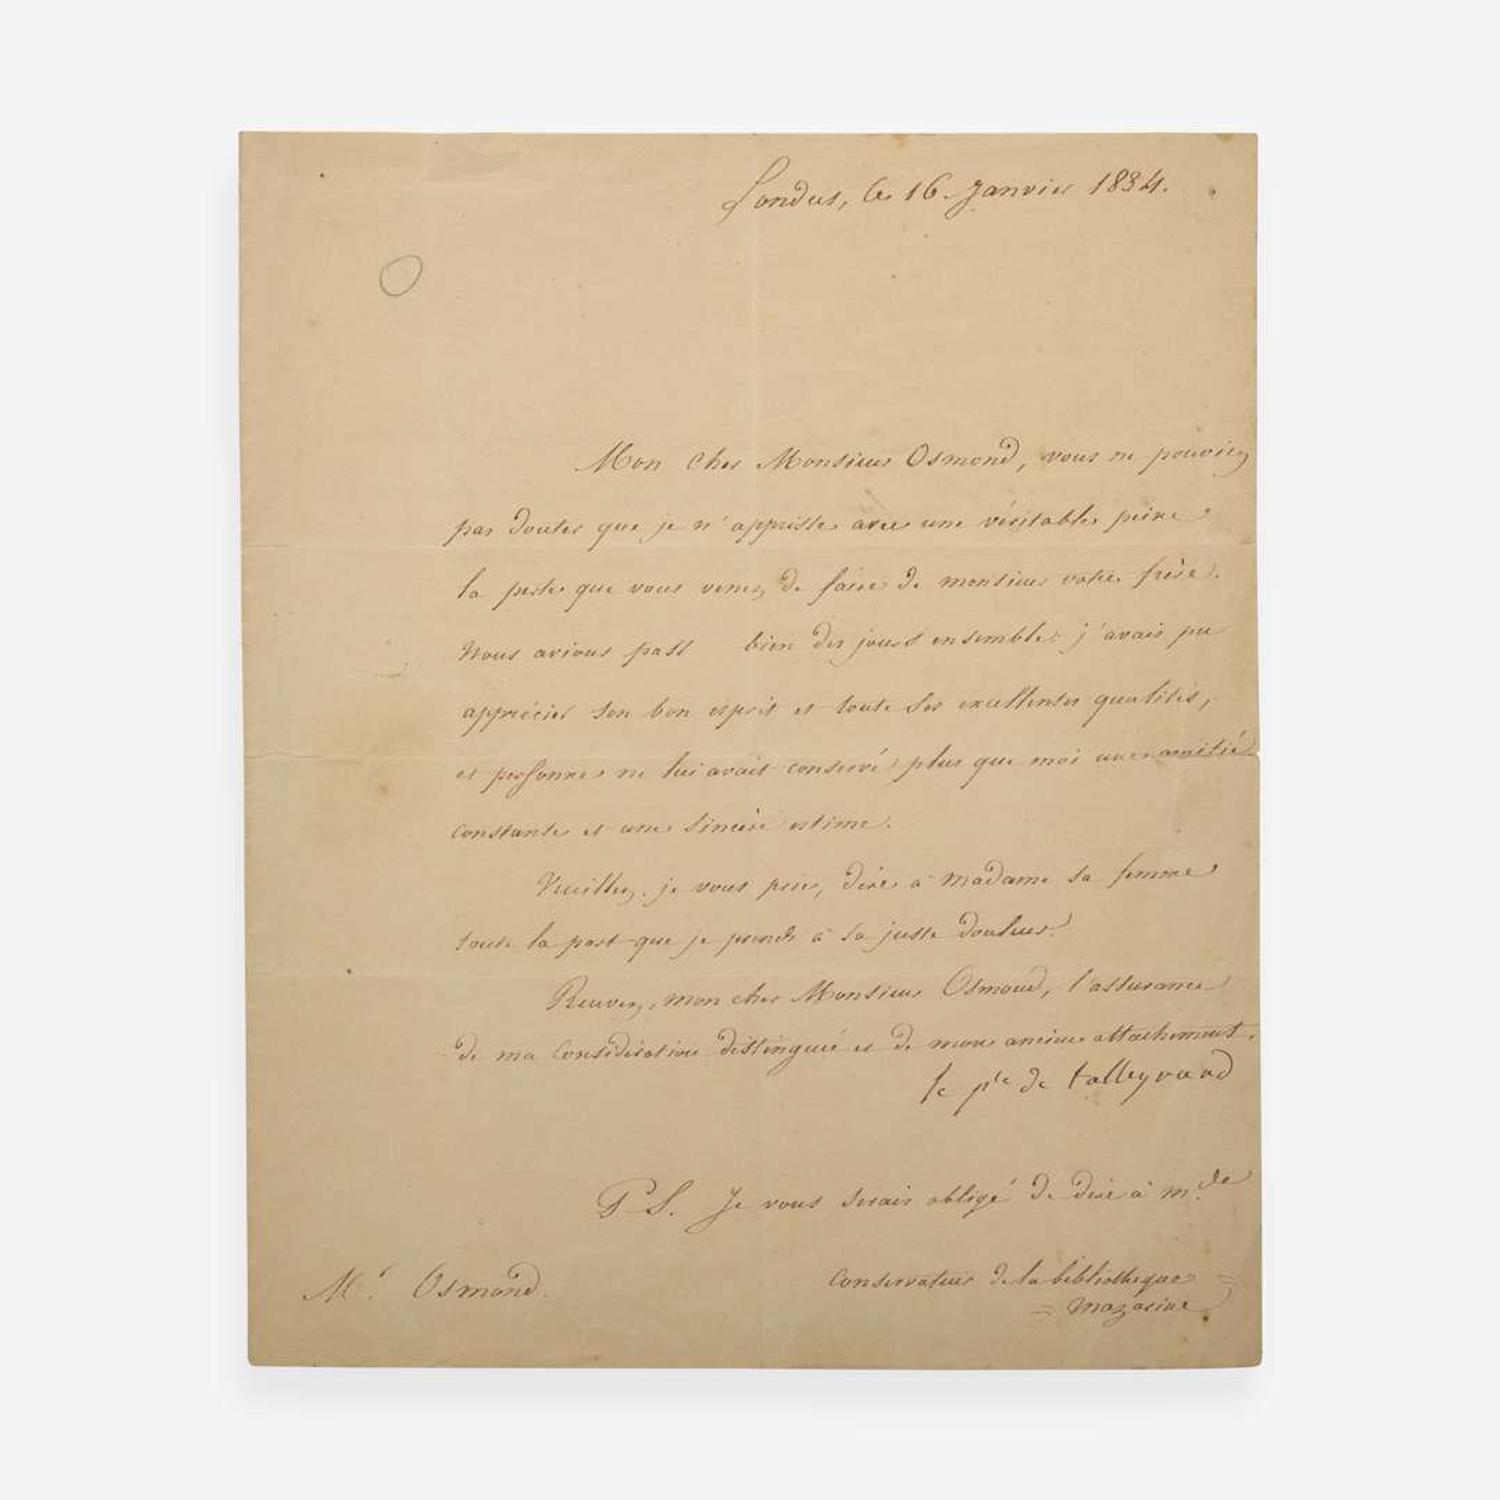 Londres, le 16 Janvier 1834.
Mon cher Monsieur Osmond, vous ne pouviez
pas douter que je n'apprisse avec une véritable peine
la perte que vous venez de faire de monsieur votre frère.
Nous avions passé bien des jours ensemble: j'avais pu
apprécier son bon esprit et toute ses excellentes qualités,
et personne ne lui avait conservé plus que moi une amitié
constante et une sincère estime.
Veuillez, je vous prie, dire à madame sa femme
toute la part que je prends à sa juste douleur.
Recevez, mon cher Monsieur Osmond, l'assurance
de ma considération distinguée et de mon ancien attachement.
le p^ce de talleyrand
P S. Je vous serais obligé de dire à m. de
Mr. Osmond.
Conservateur de la bibliothèque
= mazarine